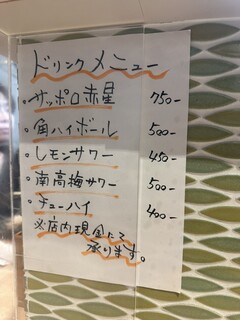 ドリンクメニュー
・サッポロ赤星 750-
・角ハイボール 500-
・レモンサワー 450-
・南高梅サワー 500-
・チューハイ 400-
※店内現金にて
承ります。